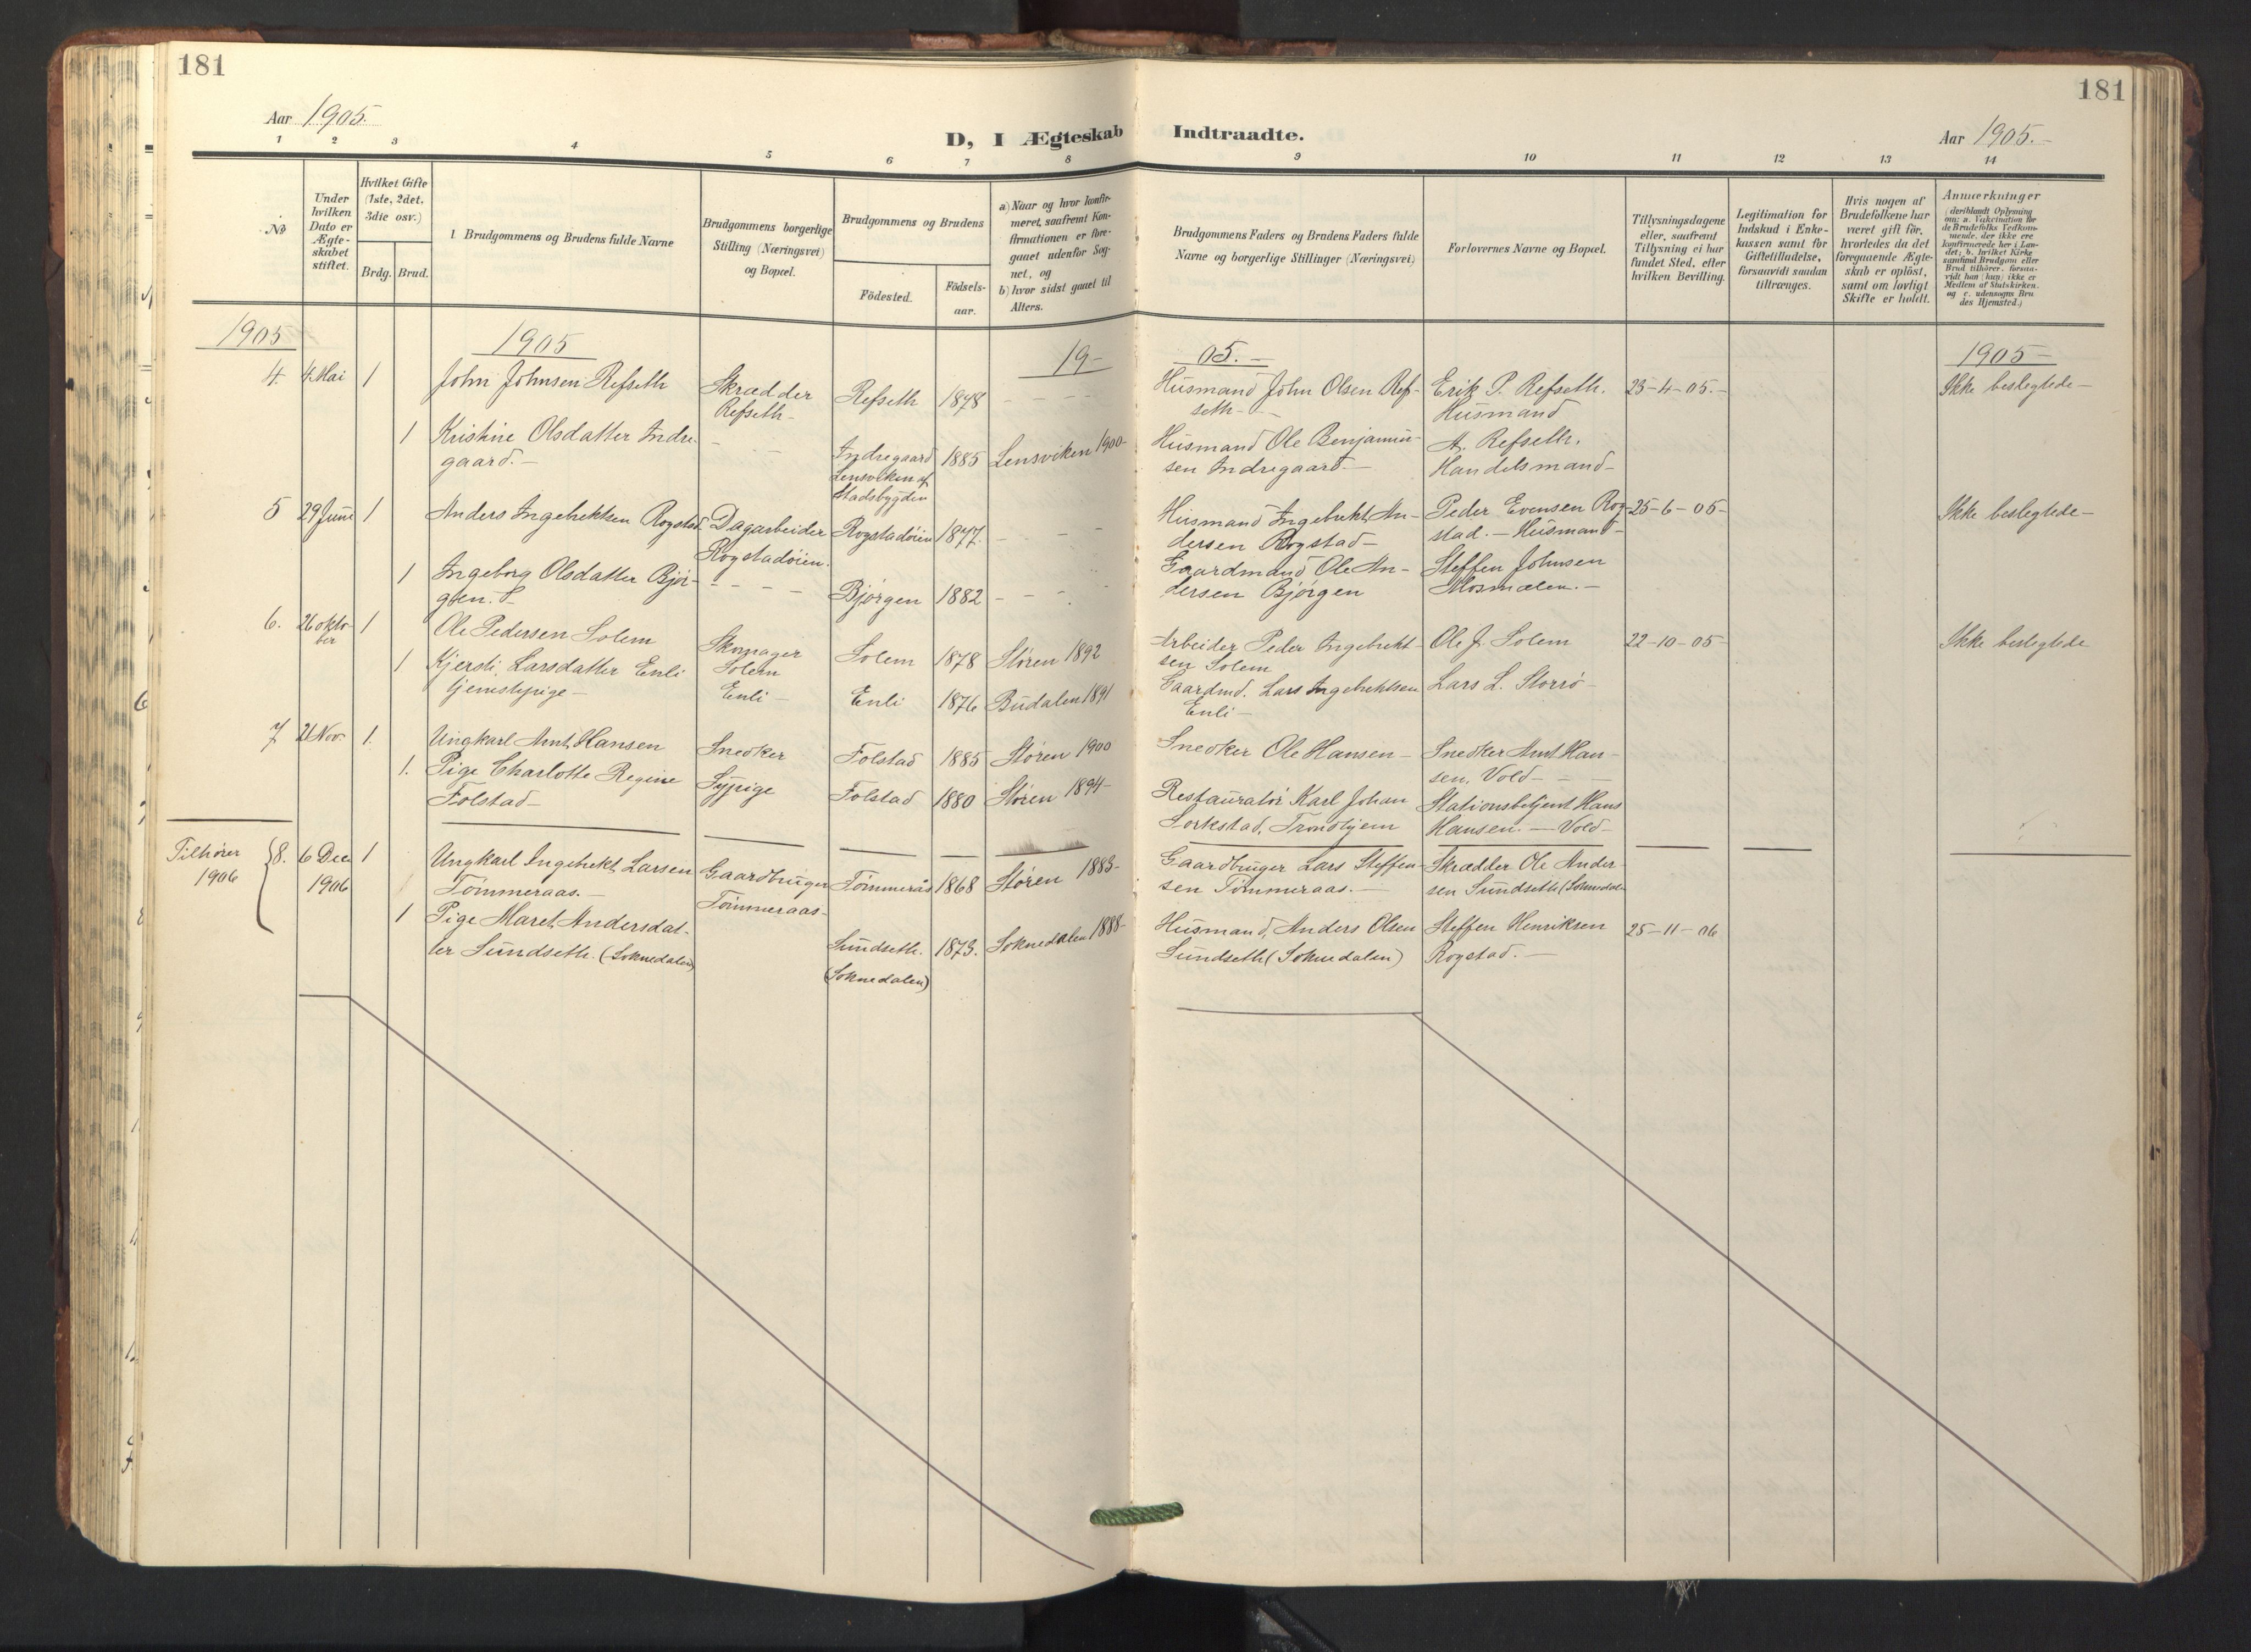 181
181
Aar 1905.
D, I Ægteskab Indtraadte.
Aar 1905.
1 2 3 4 5 6 7 8 9 10 11 12 13 14
No
Under
hvilken
Dato er
Ægte-
skabet
stiftet.
Hvilket Gifte
(1ste, 2det,
3die osv.)
Brdg. Brud.
Brudgommens og Brudens fulde Navne
Brudgommens borgerlige
Stilling (Næringsvei)
og Bopæl.
Brudgommens og Brudens
Födested.
Födsels-
aar.
a) Naar og hvor konfir-
meret, saafremt Kon-
firmationen er fore-
gaaet udenfor Sog-
net, og
b) hvor sidst gaaet til
Alters.
Brudgommens Faders og Brudens Faders fulde
Navne og borgerlige Stillinger (Næringsvei)
Forlovernes Navne og Bopæl.
Tillysningsdagene
eller, saafremt
Tillysning ei har
fundet Sted, efter
hvilken Bevilling.
Legitimation for
Indskud i Enke-
kassen samt for
Giftetilladelse,
forsaavidt saadan
tiltrænges.
Hvis nogen af
Brudefolkene har
været gift för,
hvorledes da det
foregaaende Ægte-
skab er oplöst,
samt om lovligt
Skifte er holdt.
Anmærkninger
(deriblandt Oplysning
om: a. Vakcination for
de Brudefolks Vedkom-
mende, der ikke ere
konfirmerede her i Lan-
det; b. hvilket Kirke
samfund Brudgom eller
Brud tilhörer, forsaa-
vidt han (hun) ikke er
Medlem af Statskirken,
og c. udensogns Bru
des Hjemsted.)
1905
1905
19-
05. -
1905 -
4. 4. Mai 1
John Johnsen Refseth
Skrædder
Refseth -
Refseth 1878 - - - -
Husmand John Olsen Ref-
seth -
Erik P. Refseth.
Husmand
23-4-05.-
Ikke beslegtede -
1 Kristine Olsdatter Indre-
gaard. -
Indregaard
Lensviken af
Stadsbygden
1885 Lensviken 1900-
Husmand Ole Benjamin-
sen Indregaard. -
A. Refseth.
Handelsmand -
5 29 Juni 1
Anders Ingebrektsen Rogstad
Dagarbeider
Rogstadöien.
Rogstadöien 1877. - - -
Husmand Ingebrekt An-
dersen Rogstad -
Peder Evensen Rog-
stad. - Husmand -
25-6-05-
Ikke beslegtede -
1 Ingeborg Olsdatter Bjør-
gen.
Bjørgen 1882 - - -
Gaardmand Ole An-
dersen Bjørgen
Steffen Johnsen
Mosmælen. -
6. 26 okto-
ber 1
Ole Pedersen Solem
Skomager
Solem
Solem 1878 Støren 1892
Arbeider Peder Ingebrekt-
sen Solem
Ole J. Solem
22-10-05-
Ikke beslegtede
1 Kjersti Larsdatter Enli
tjenestepige -
Enli -
Enli 1876 Budalen 1891
Gaardmd. Lars Ingebrektsen
Enli -
Lars L. Storrö -
7 21 Nov. 1.
Ungkarl Arnt Hansen
Snedker
Folstad 1885 Støren 1900
Snedker Ole Hansen -
Snedker Arnt Han-
sen. Vold - -
1. Pige Charlotte Regine
Folstad -
Sypige
Folstad 1880 Støren 1894-
Restauratör Karl Johan
Lorkstad, Trondhjem
Stationsbetjent Hans
Hansen. - Vold -
Tilhører
1906
8. 6 Dec
1906 1
Ungkarl Ingebrekt Larsen
Tömmeraas. -
Gaardbruger
Tömmeraas -
Tömmerås 1868 Støren 1883-
Gaardbruger Lars Steffen-
sen Tömmeraas. -
Skrædder Ole Ander-
sen Sundseth (Soknedalen
1 Pige Maret Andersdat-
ter Sundseth. (Soknedalen)
Sundseth.
(Soknedalen)
1873. Soknedalen 1888-
Husmand, Anders Olsen
Sundseth (Soknedalen)
Steffen Henriksen
Rogstad. -
25-11-06